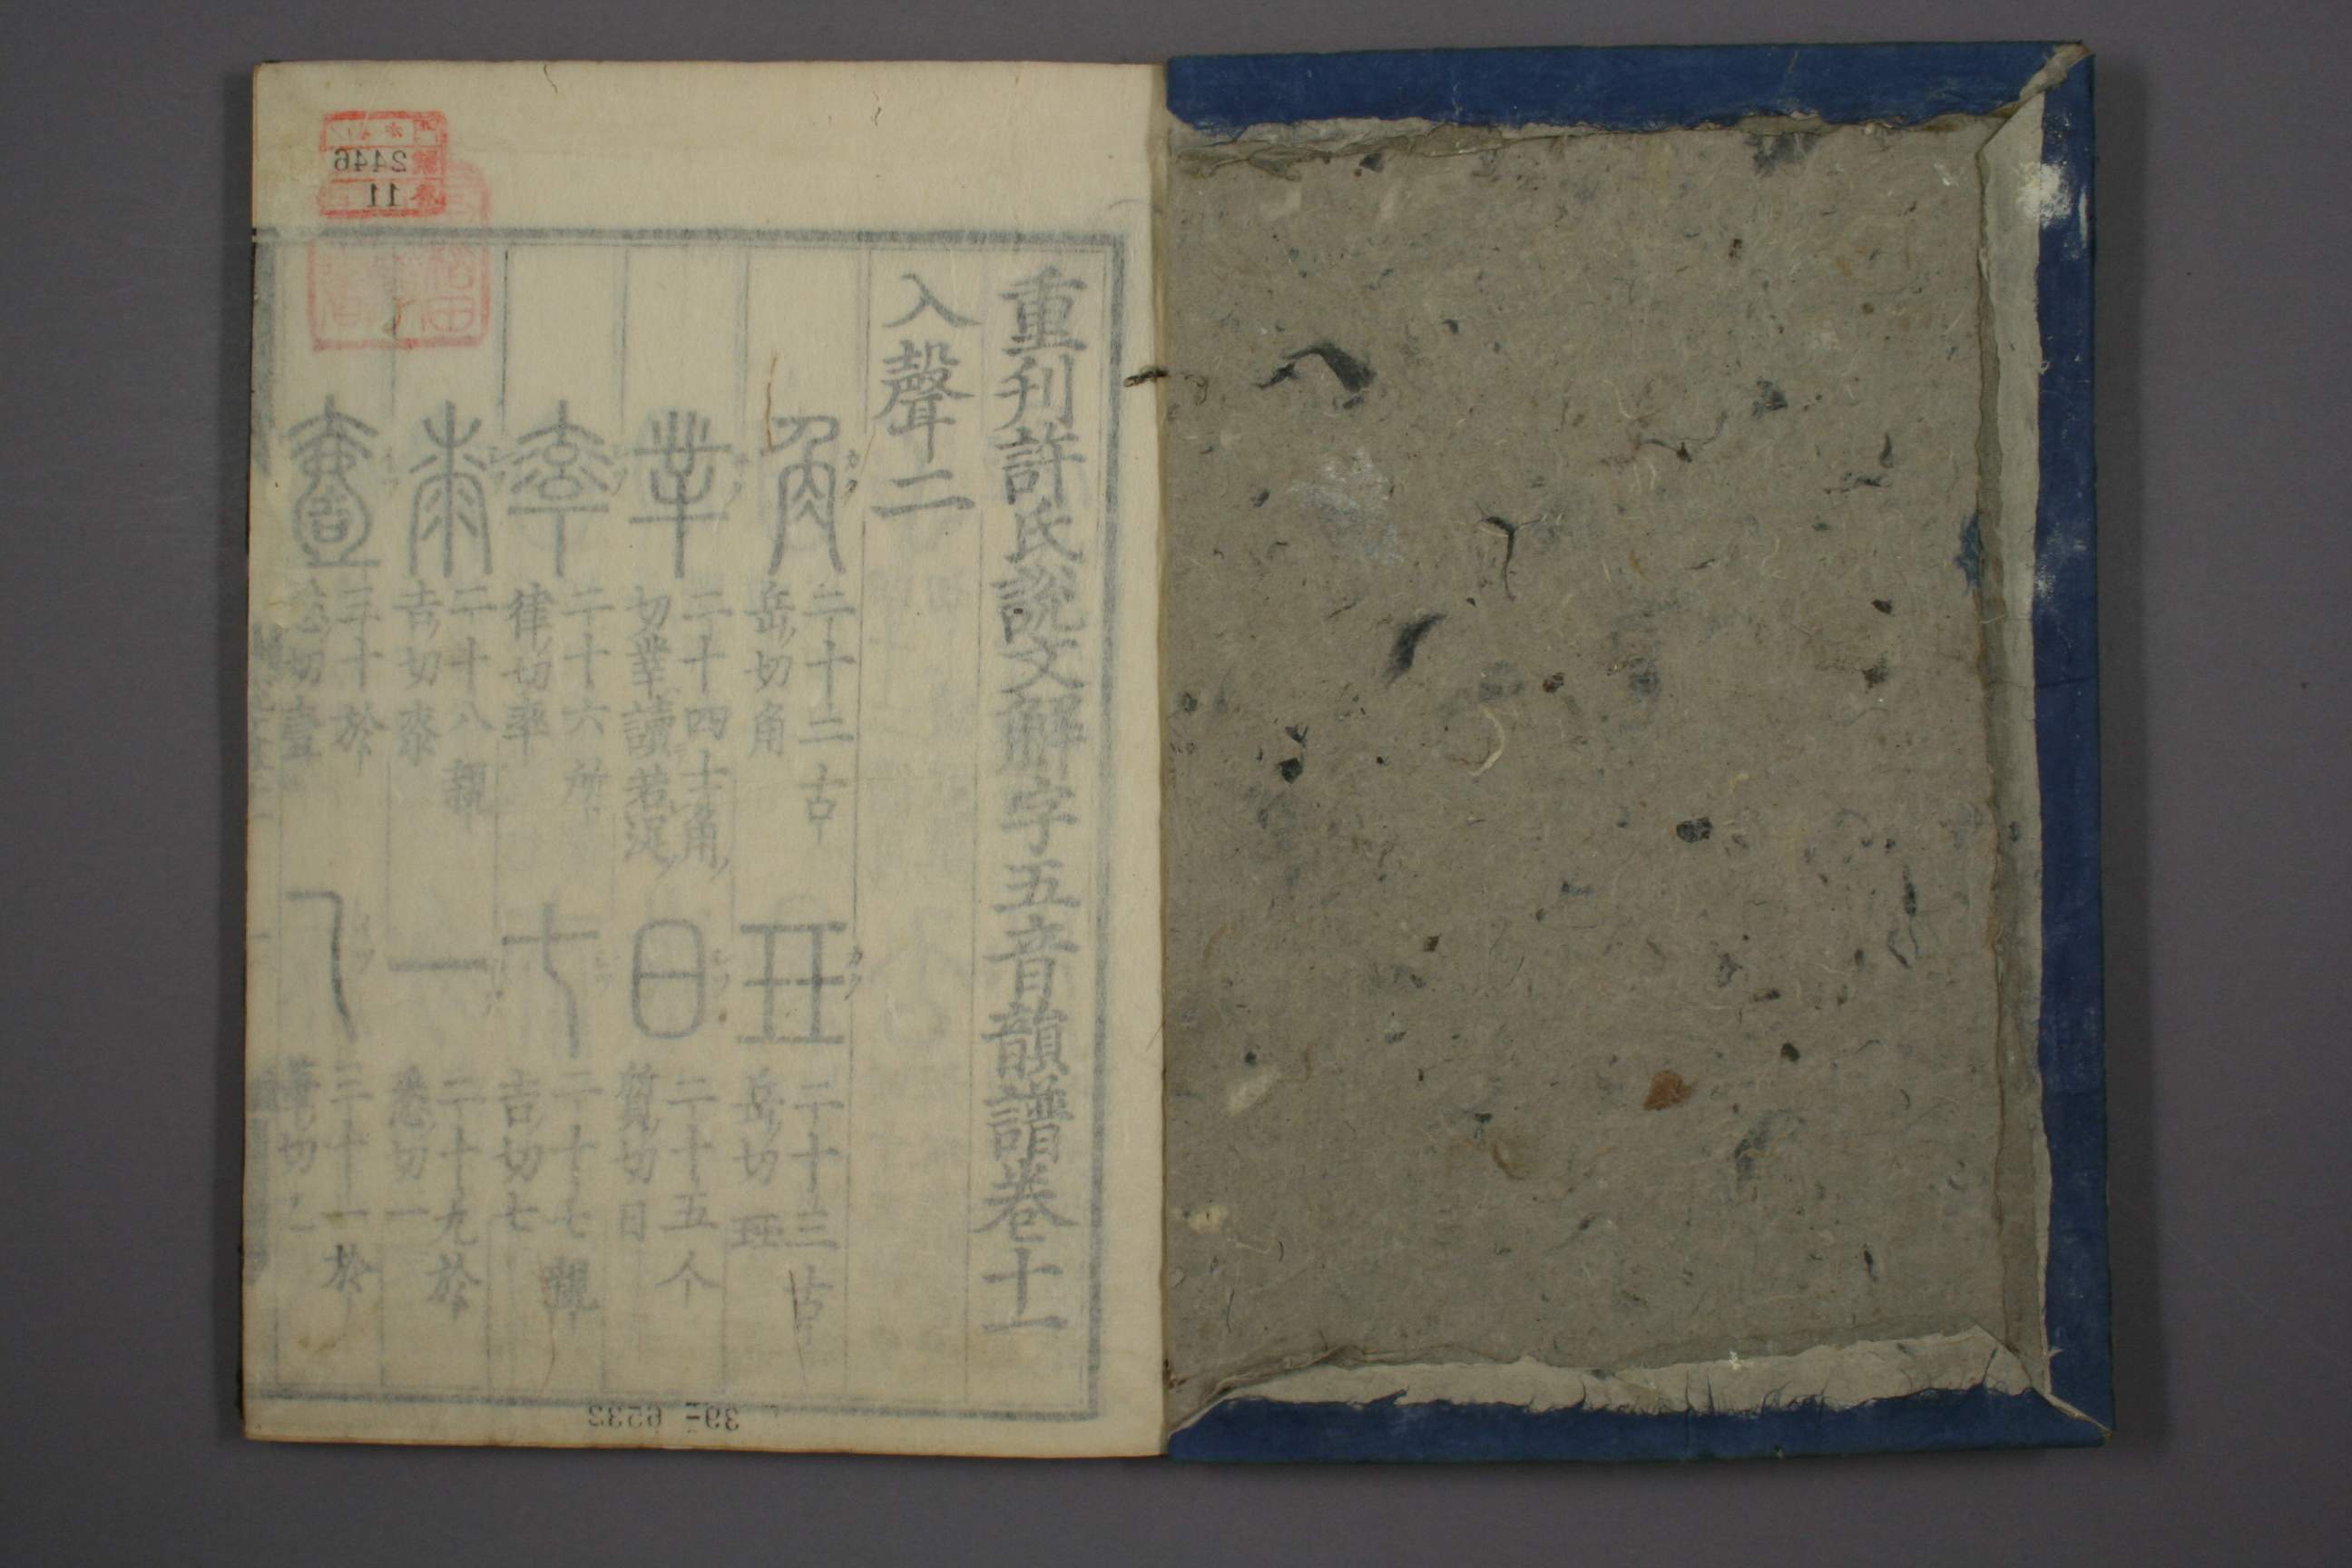 重刊許氏説文解字五音韻譜卷十一
入聲二
角 二十二古
岳切角
玨 二十三古
岳切玨
丵 二十四士角
切丵讀若浞
日 二十五人
質切日
率 二十六所
律切率
七 二十七親
吉切七
桼 二十八親
吉切桼
一 二十九於
悉切一
壹 三十於
悉切壹
三十一於
筆切
2446
11